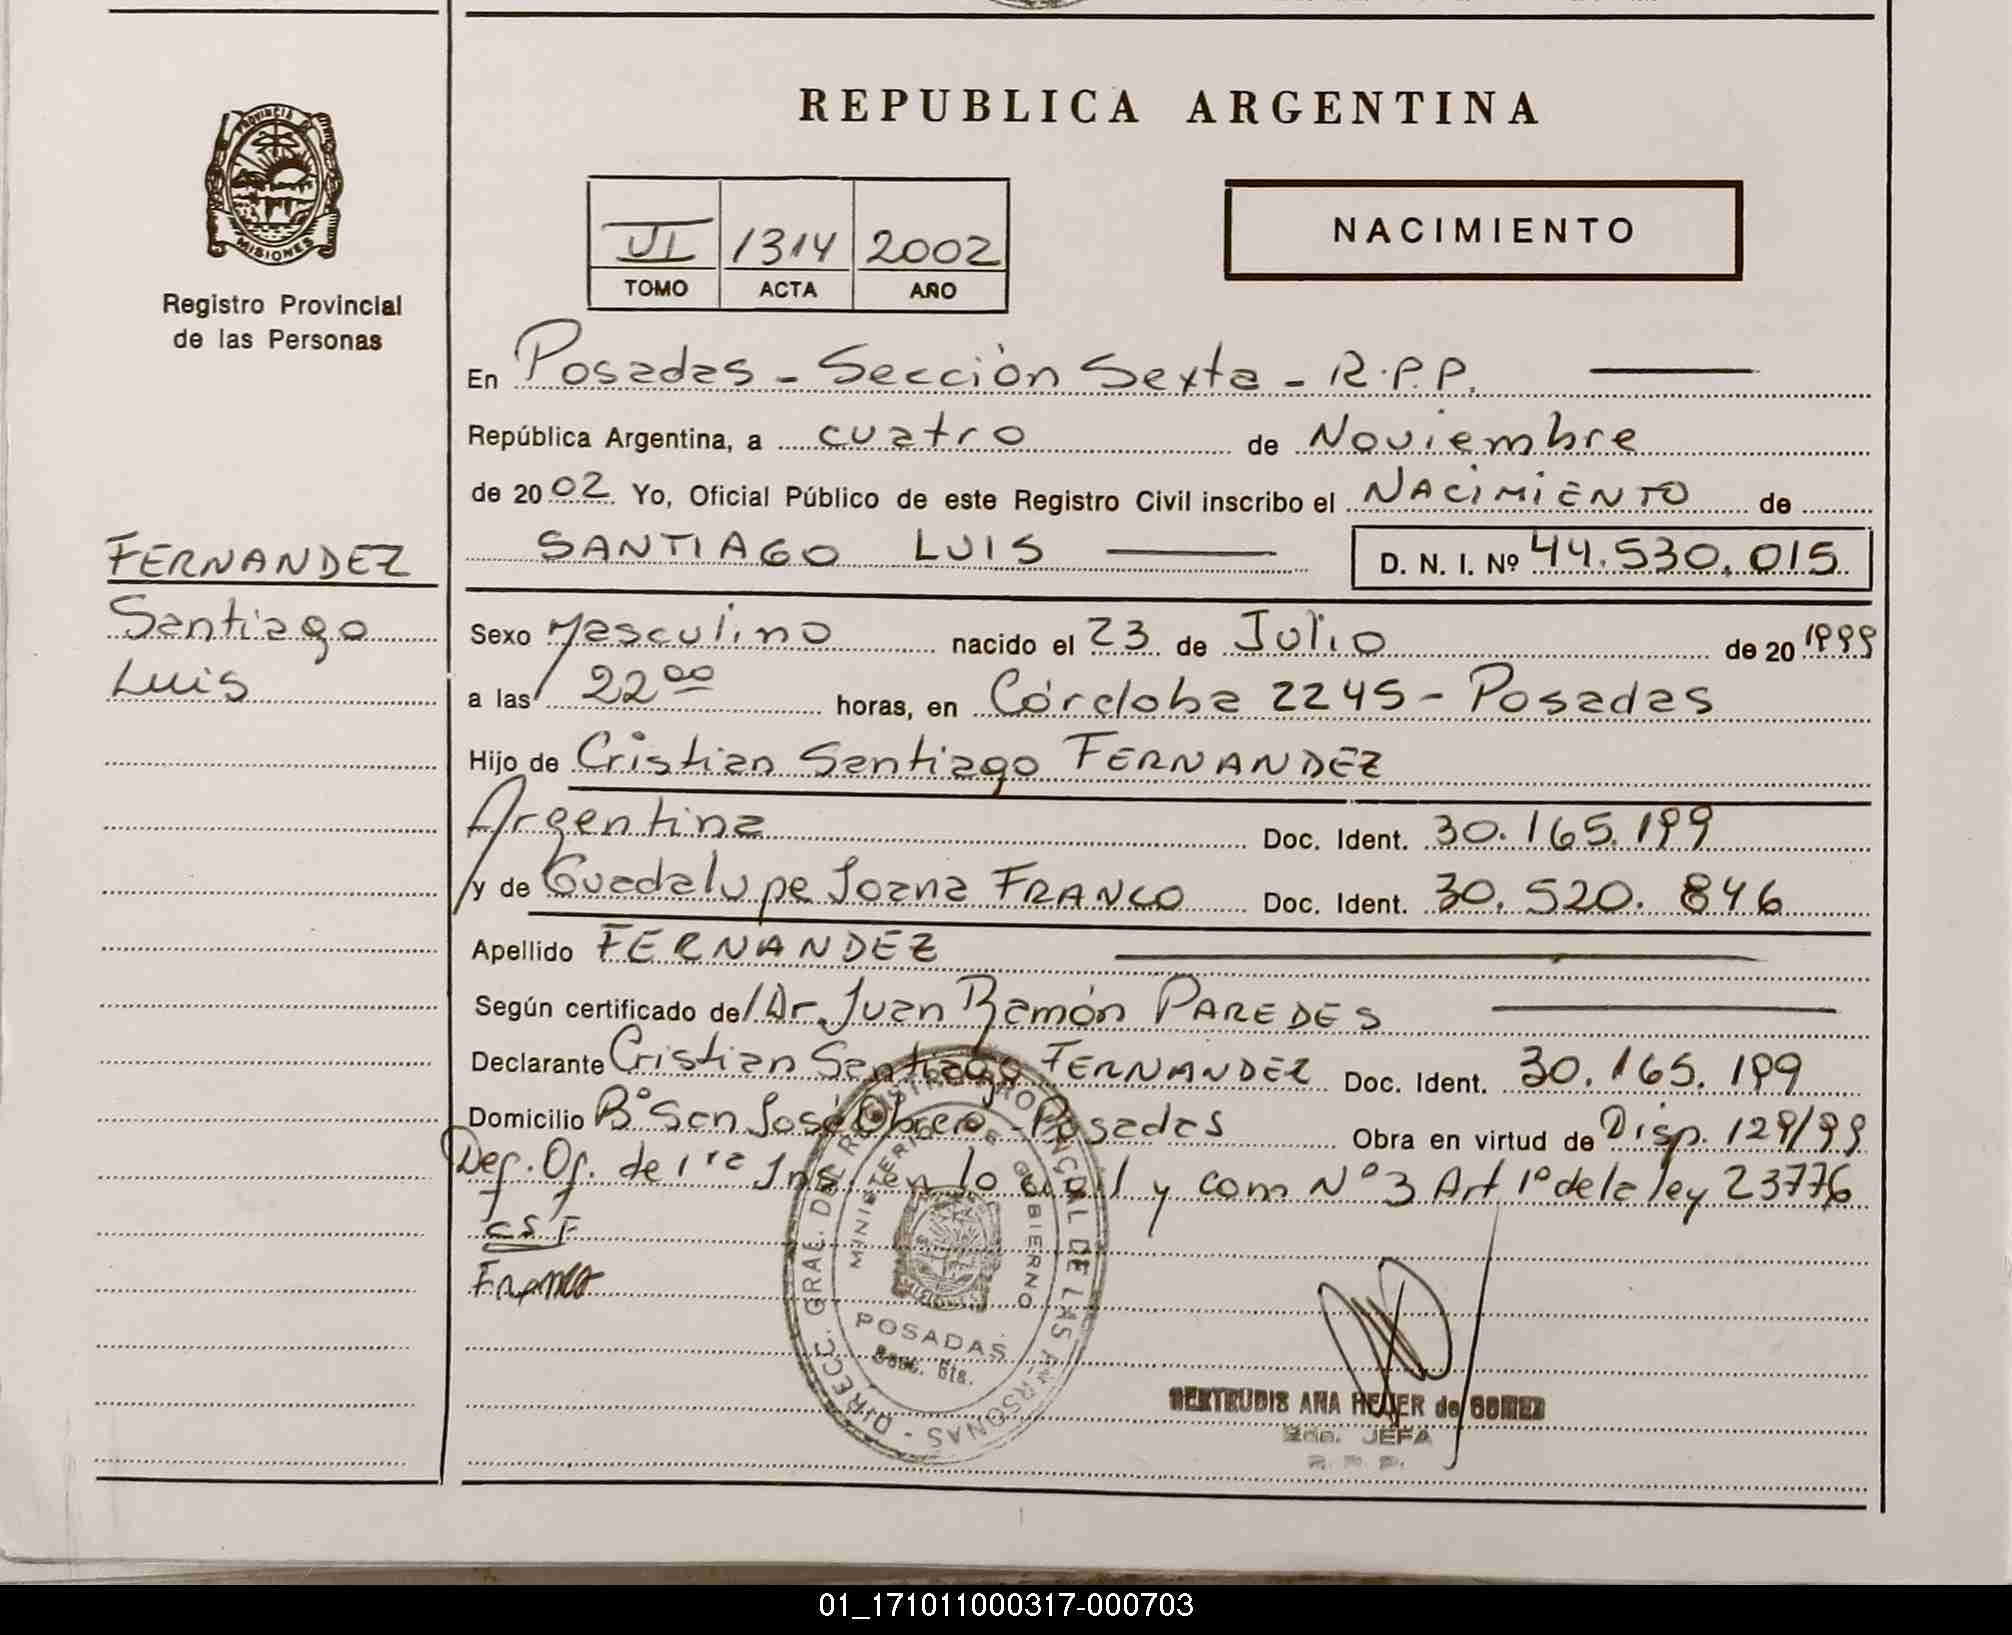 REPUBLICA ARGENTINA
PROVINCIA DE
MISIONES
Registro Provincial
de las Personas
VI 1314 2002
TOMO ACTA AÑO
NACIMIENTO
En Posadas - Sección Sexta - R.P.P.
República Argentina, a cuatro de Noviembre
de 20 02 Yo, Oficial Público de este Registro Civil inscribo el NACIMIENTO de
SANTIAGO LUIS D. N. I. Nº 44.530.015
FERNANDEZ
Santiago
Luis
Sexo Masculino nacido el 23 de Julio de 20 1999
a las 22 00 horas, en Córdoba 2245 - Posadas
Hijo de Cristian Santiago FERNANDEZ
Argentina Doc. Ident. 30.165.199
y de Guadalupe Joana FRANCO Doc. Ident. 30.520.846
Apellido FERNANDEZ
Según certificado de/ Dr. Juan Ramón PAREDES
Declarante Cristian Santiago FERNANDEZ Doc. Ident. 30.165.199
Domicilio Bº San José Obrero - Posadas Obra en virtud de Disp. 129/99
Def. Of. de 1ra Ins. en lo civil y com Nº 3 Art 1º de la ley 23776
CSF
Franco
DIRECC. GRAL. DEL REGISTRO PROVINCIAL DE LAS PERSONAS
MINISTERIO DE GOBIERNO
MISIONES
POSADAS
Secc. 6ta.
GERTRUDIS ANA HEUER de GOMEZ
2da. JEFA
R. P. P.
01_171011000317-000703